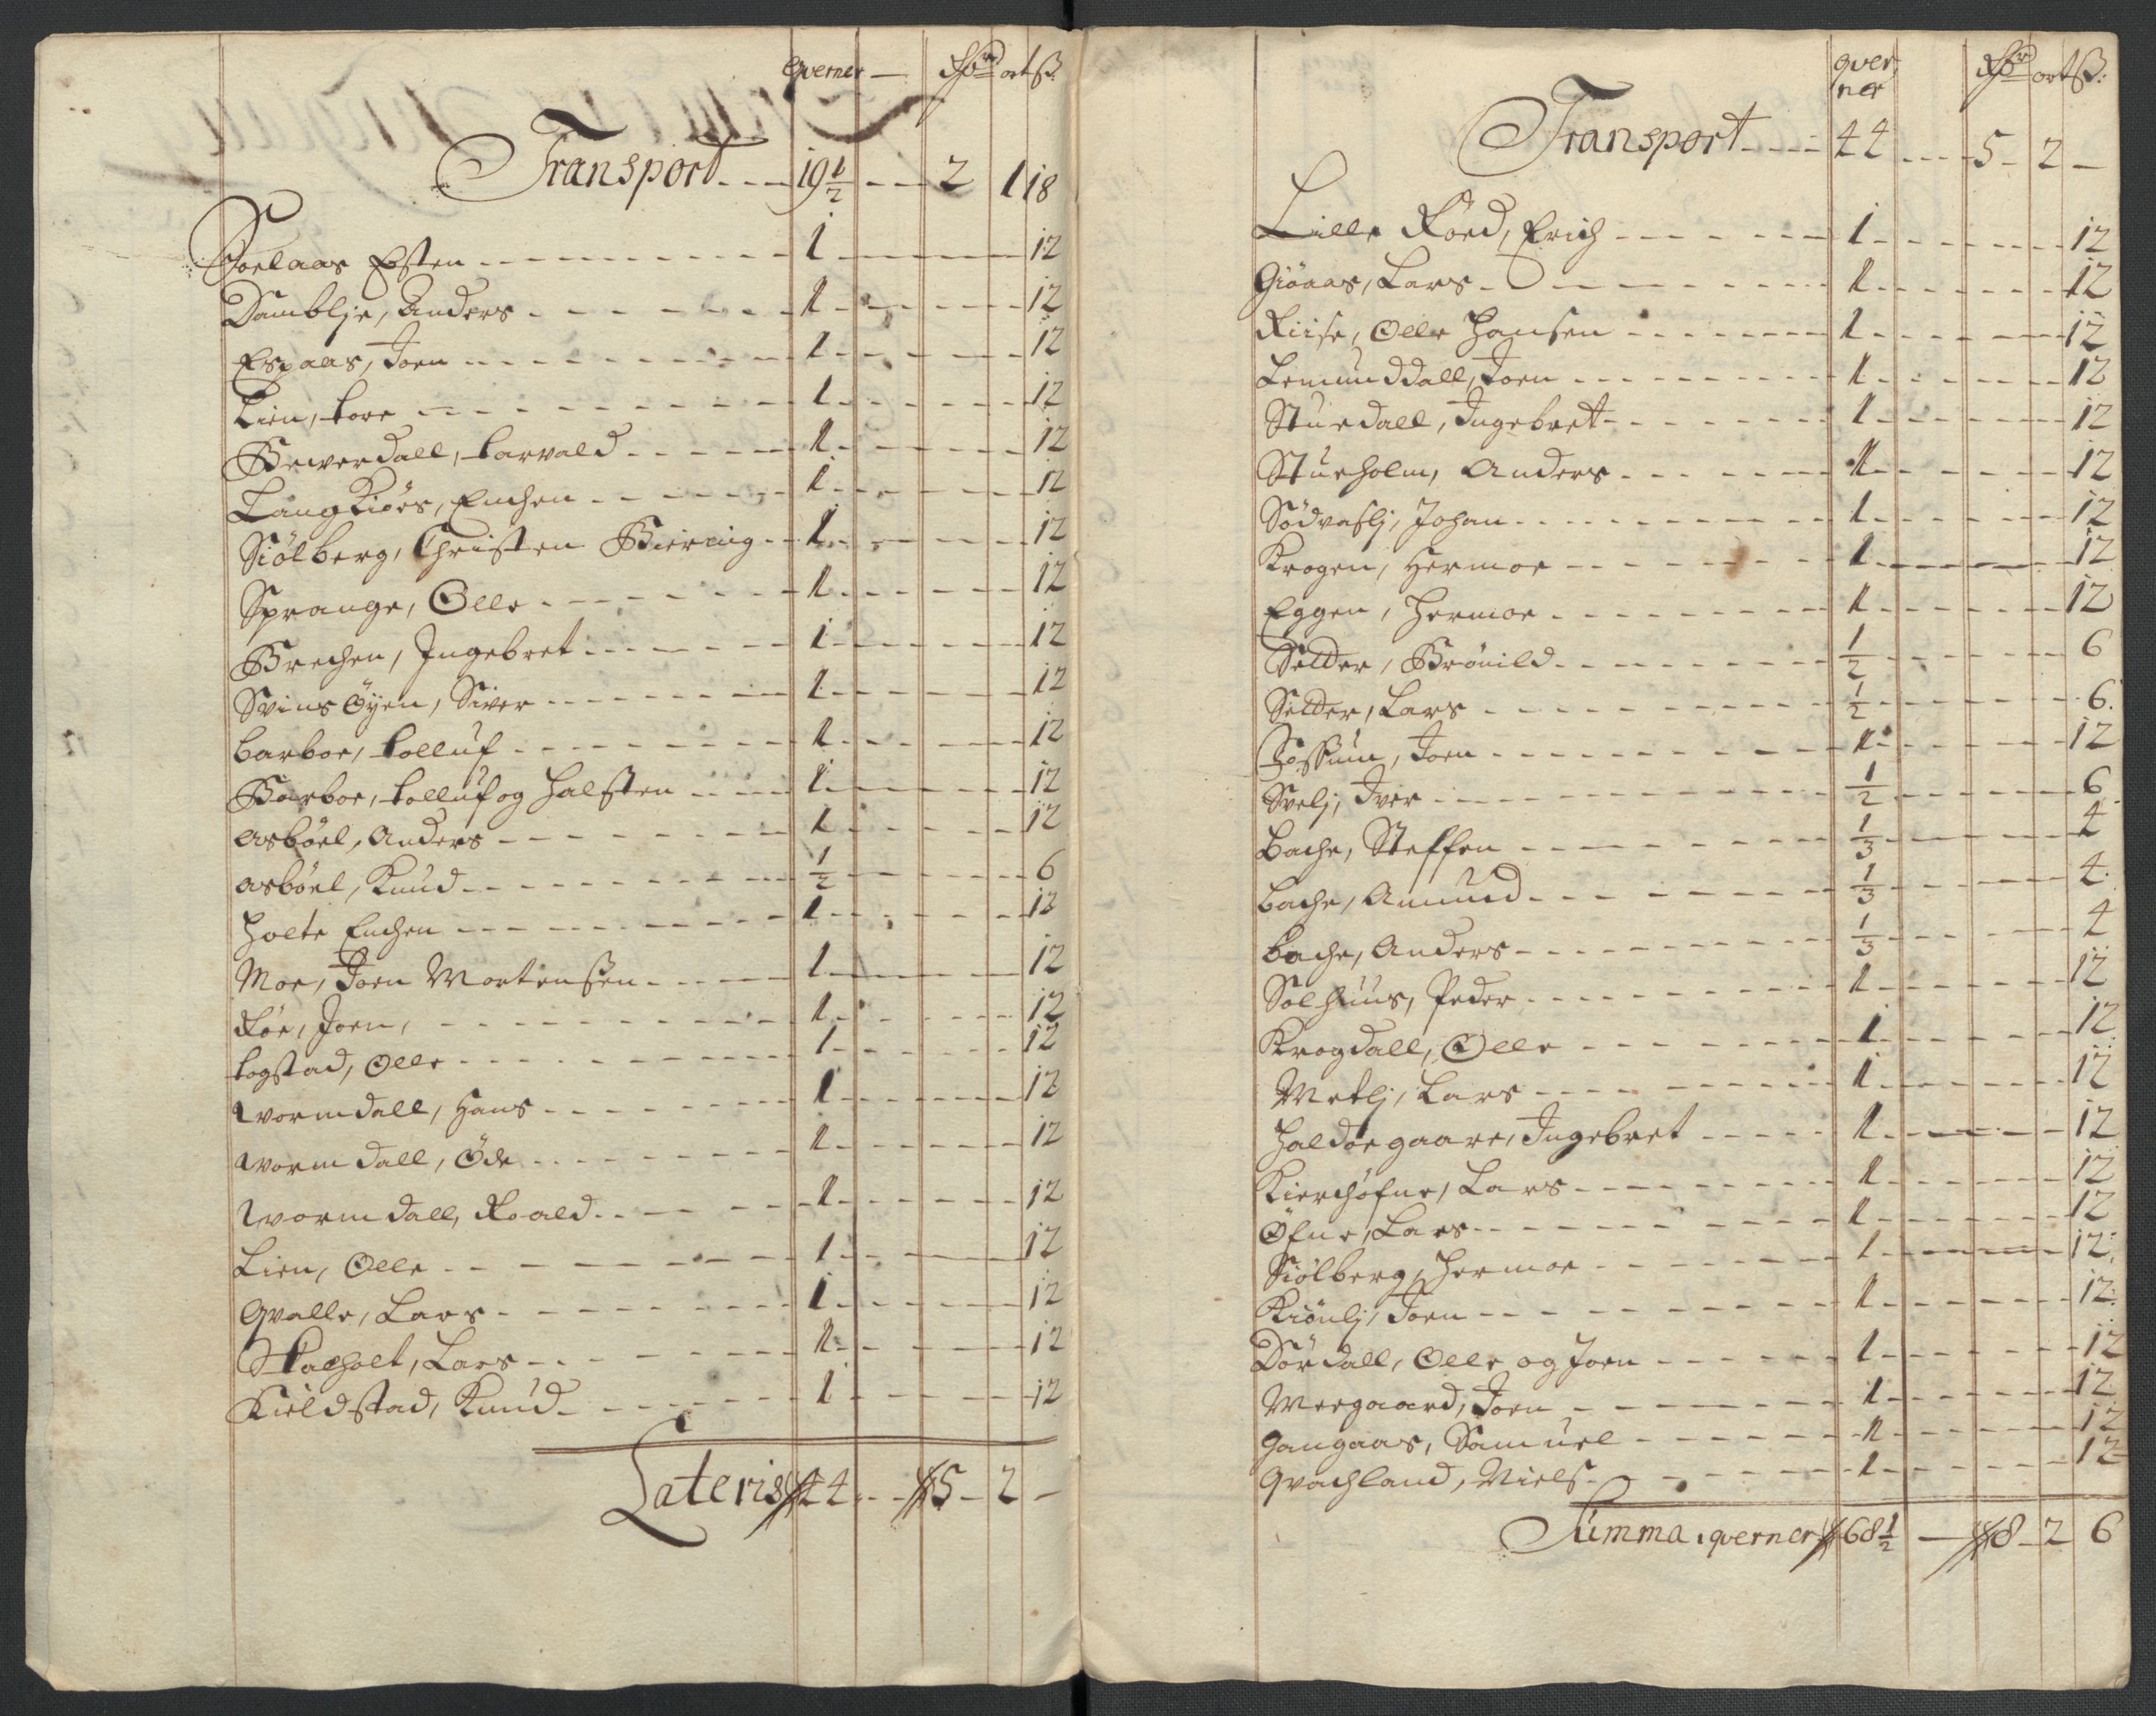 Qverner — Rdr ort ß.
Transport - - - 19 1/2 - - - 2 1 18
Joelaas Esten - - - 1 - - - 12
Damblje, Anders - - - 1 - - - 12
Espaas, Joen - - - 1 - - - 12
Lien, Tore - - - 1 - - - 12
Bewerdall, Tarvald - - - 1 - - - 12
Langkiøs, Enchen - - - 1 - - - 12
Siølberg, Christen Biering - - 1 - - - 12
Sprange, Olle - - - 1 - - - 12
Brechen, Ingebret - - - 1 - - - 12
Svinsøyen, Siver - - - 1 - - - 12
Barboe, Tolluf - - - 1 - - - 12
Barboe, Tolluf og Halsten - - - 1 - - - 12
Asbøel, Anders - - - 1 - - - 12
Asbøel, Knud - - - 1/2 - - - 6
Holte Enchen - - - 1 - - - 12
Moe, Joen Mortensen - - - 1 - - - 12
Røe, Joen, - - - 1 - - - 12
Togstad, Olle - - - 1 - - - 12
Wormdall, Hans - - - 1 - - - 12
Wormdall, Ode - - - 1 - - - 12
Wormdall, Roald - - - 1 - - - 12
Lien, Olle - - - 1 - - - 12
Qvalle, Lars - - - 1 - - - 12
Stacholt, Lars - - - 1 - - - 12
Kieldstad, Knud - - - 1 - - - 12
Lateris 44 - - 5 - 2 -
qver
ner Rdr ort ß:
Transport - - - 44 - - - 5 - 2 -
Lille Røed, Erich - - - 1 - - - 12
Giøaas, Lars - - - 1 - - - 12
Riise, Olle Hansen - - - 1 - - - 12
Lemunddall, Joen - - - 1 - - - 12
Stuedall, Ingebret - - - 1 - - - 12
Stueholm, Anders - - - 1 - - - 12
Sødvaslj, Johan - - - 1 - - - 12
Krogen, Hermoe - - - 1 - - - 12
Eggen, Hermoe - - - 1 - - - 12
Selder, Brønild - - - 1/2 - - - 6
Selder, Lars - - - 1/2 - - - 6
Jossum, Joen - - - 1 - - - 12
Svelj, Iver - - - 1/2 - - - 6
Bache, Steffen - - - 1/3 - - - 4
Bache, Amund - - - 1/3 - - - 4
Bache, Anders - - - 1/3 - - - 4
Solhuus, Peder - - - 1 - - - 12
Krogdall, Olle - - - 1 - - - 12
Metlj, Lars - - - 1 - - - 12
Haldoegaare, Ingebret - - - 1 - - - 12
Kierchøfne, Lars - - - 1 - - - 12
Øfne, Lars - - - 1 - - - 12
Siølberg, Hermoe - - - 1 - - - 12
Kiønlj, Joen - - - 1 - - - 12
Dørdall, Olle og Joen - - - 1 - - - 12
Meegaard, Joen - - - 1 - - - 12
Gangaas, Samuel - - - 1 - - - 12
Qvachland, Niels - - - 1 - - - 12
Summa, qverner 68 1/2 — 8 - 2 6